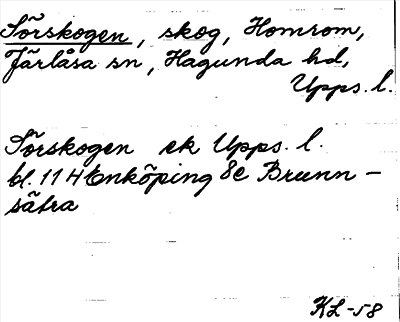 Sörskogen, skog, Homsom,
Järlåsa sn, Hagunda hd,
Upps. l.
Sörskogen ek Upps. l.
bl. 11 H Enköping 8e Brunn-
sätra
KL-58